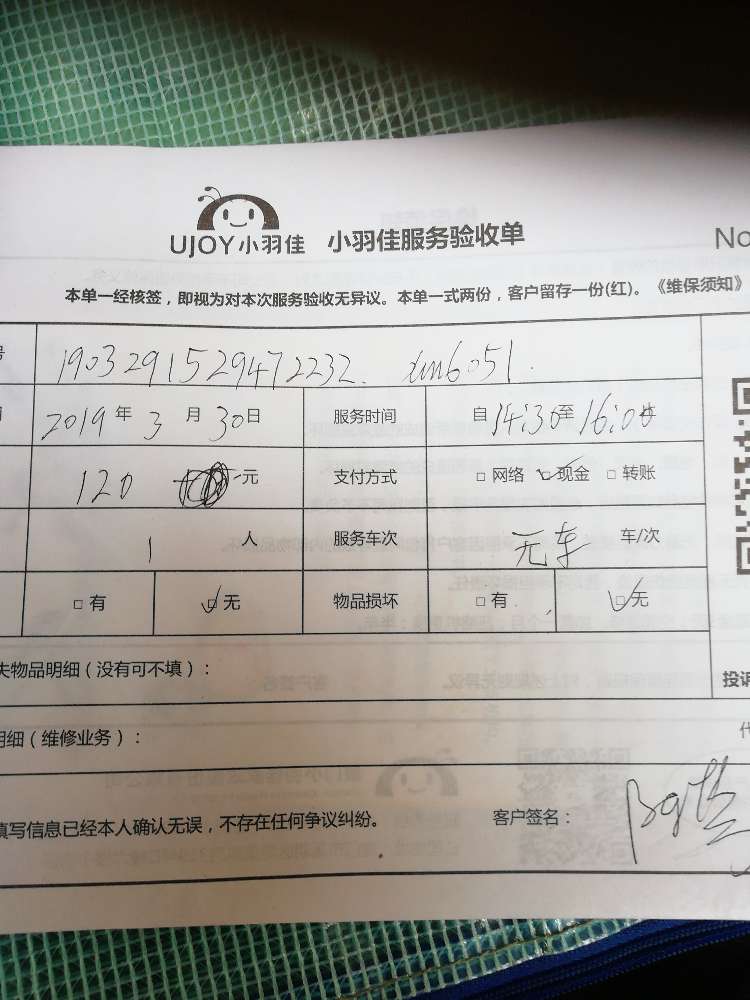 UJOY小羽佳 小羽佳服务验收单 No
本单一经核签，即视为对本次服务验收无异议。本单一式两份，客户留存一份(红)。《维保须知》
号 1903291529472232. xm6051.
2019年3月30日 服务时间 自14:30至16:00
120 元 支付方式 □网络 □现金 □转账
1人 服务车次 无车 车/次
□有 □无 物品损坏 □有 □无
失物品明细（没有可不填）：
投诉
明细（维修业务）：
填写信息已经本人确认无误，不存在任何争议纠纷。 客户签名：